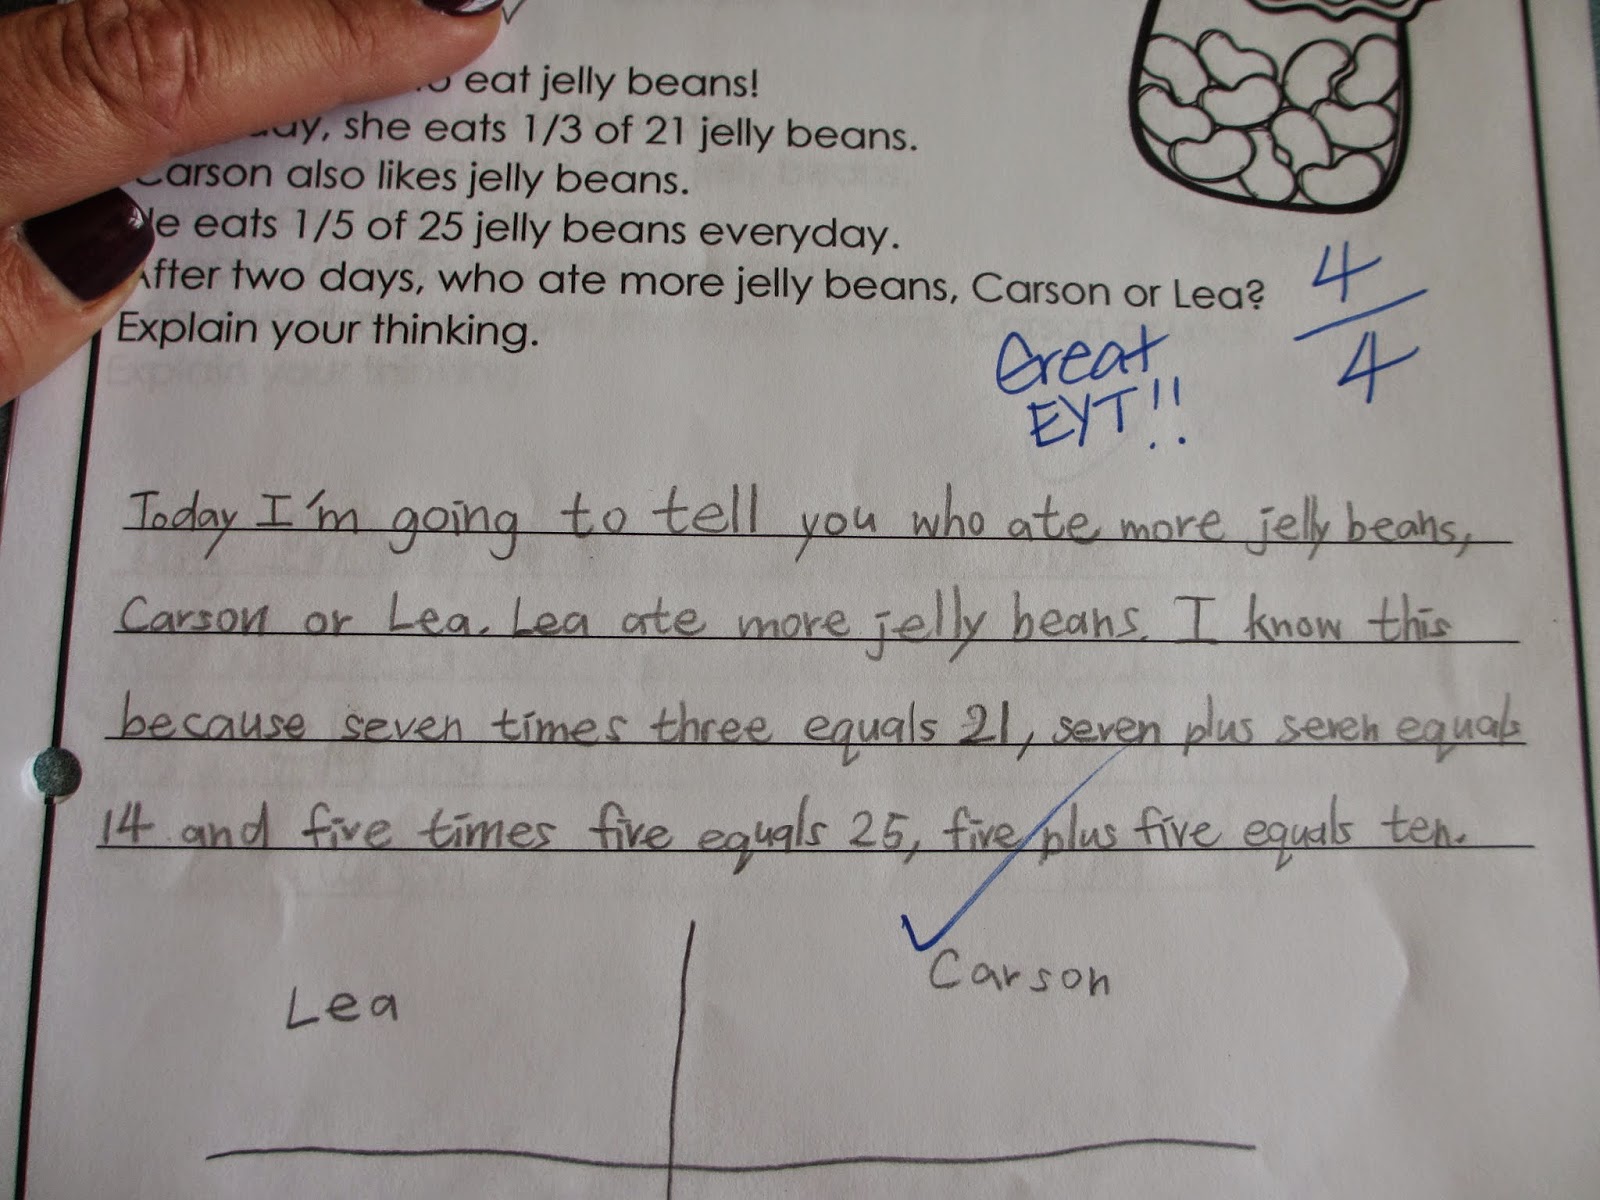 eat jelly beans!
she eats 1/3 of 21 jelly beans.
Carson also likes jelly beans.
He eats 1/5 of 25 jelly beans everyday.
After two days, who ate more jelly beans, Carson or Lea?
Explain your thinking.
4
4
Great
EYT!!
Today I'm going to tell you who ate more jelly beans,
Carson or Lea. Lea ate more jelly beans. I know this
because seven times three equals 21, seven plus seven equals
14 and five times five equals 25, five plus five equals ten.
Lea
Carson